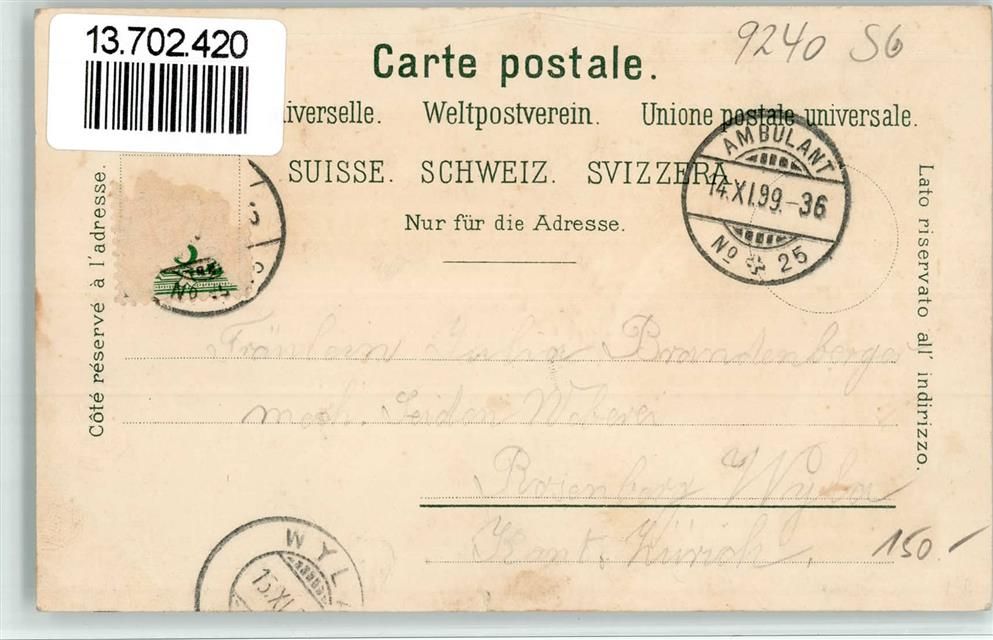 13.702.420
9240 S6
Carte postale.
iverselle. Weltpostverein. Unione postale universale.
SUISSE. SCHWEIZ. SVIZZERA
Nur für die Adresse.
AMBULANT
14.XI.99.-36
No 25
Côté réservé à l'adresse.
Lato riservato all' indirizzo.
5
No 25
Fräulein Julia Brandenberger
mech. Seiden Weberei
Rosenberg Wyla
Kant. Zürich.
150.-
WYL
15.XI